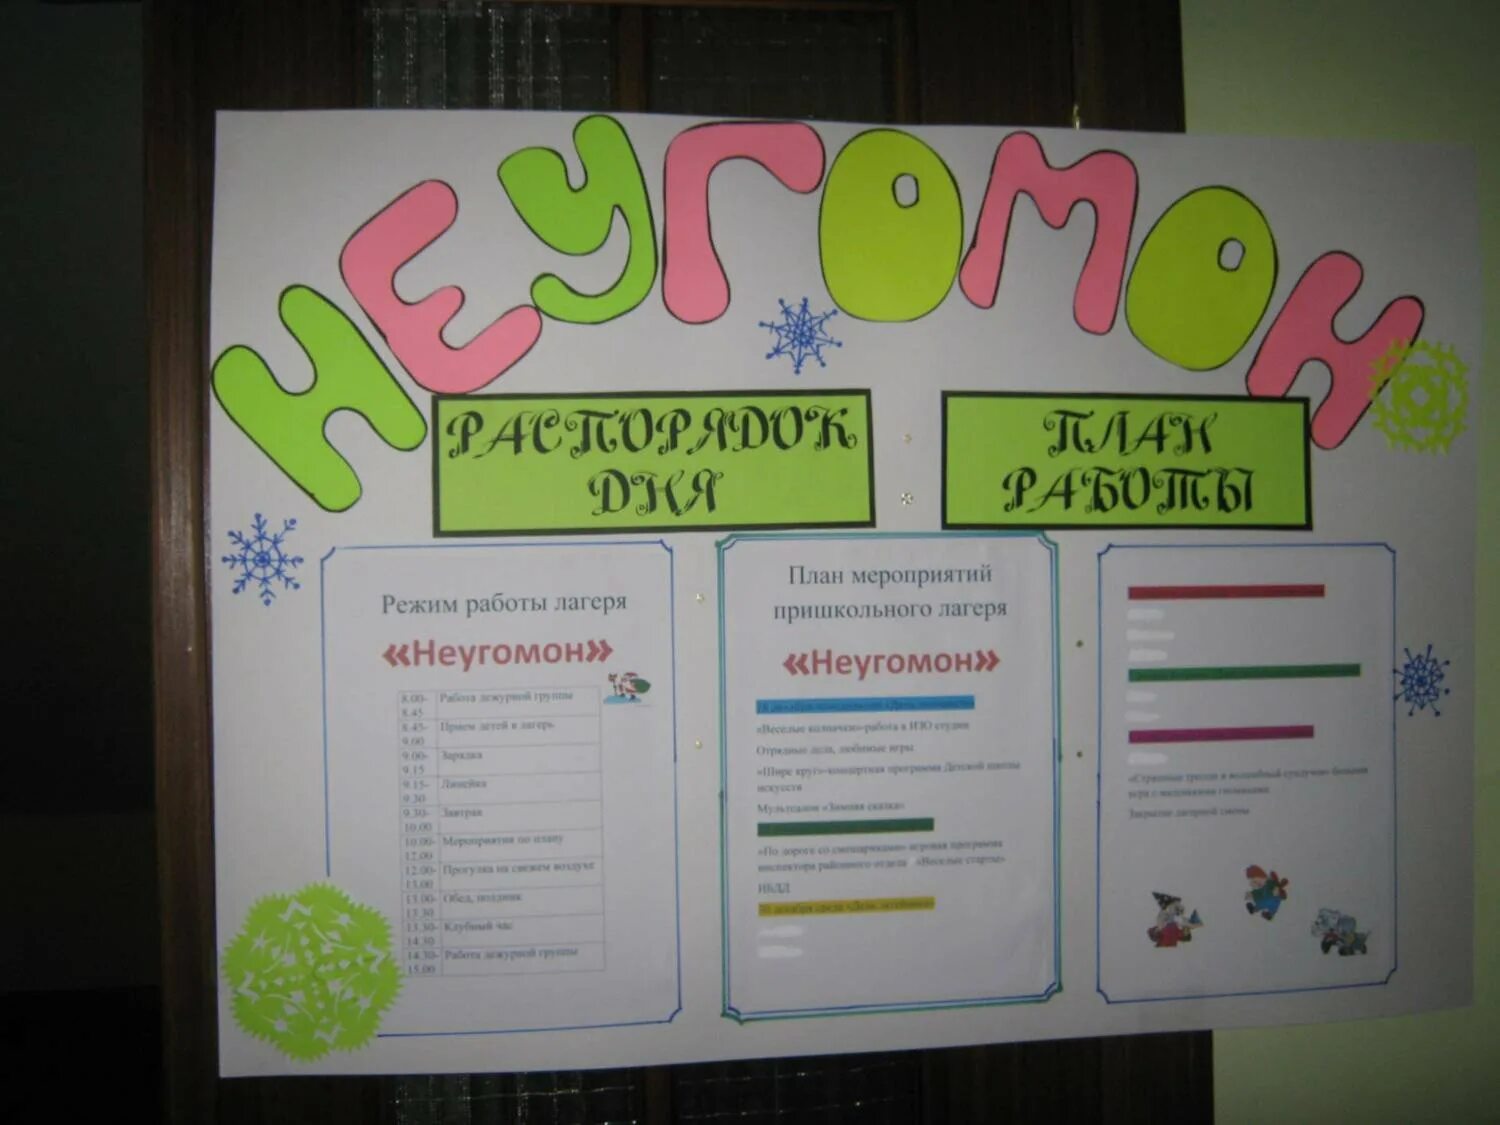 НЕУГОМОН
РАСПОРЯДОК
ДНЯ
ПЛАН
РАБОТЫ
Режим работы лагеря
«Неугомон»
8.00- Работа дежурной группы
8.45
8.45- Прием детей в лагерь
9.00
9.00- Зарядка
9.15
9.15- Линейка
9.30
9.30- Завтрак
10.00
10.00- Мероприятия по плану
12.00
12.00- Прогулка на свежем воздухе
13.00
13.00- Обед, полдник
13.30
13.30- Клубный час
14.30
14.30- Работа дежурной группы
15.00
План мероприятий
пришкольного лагеря
«Неугомон»
«Веселые колпачки»-работа в ИЗО студии
Отрядные дела, любимые игры
«Шире круг»-концертная программа Детской школы
искусств
Мультсалон «Зимняя сказка»
«По дороге со смешариками» игровая программа
инспектора районного отдела «Веселые старты»
30 декабря среда «День
игра с
Закрытие лагерной смены